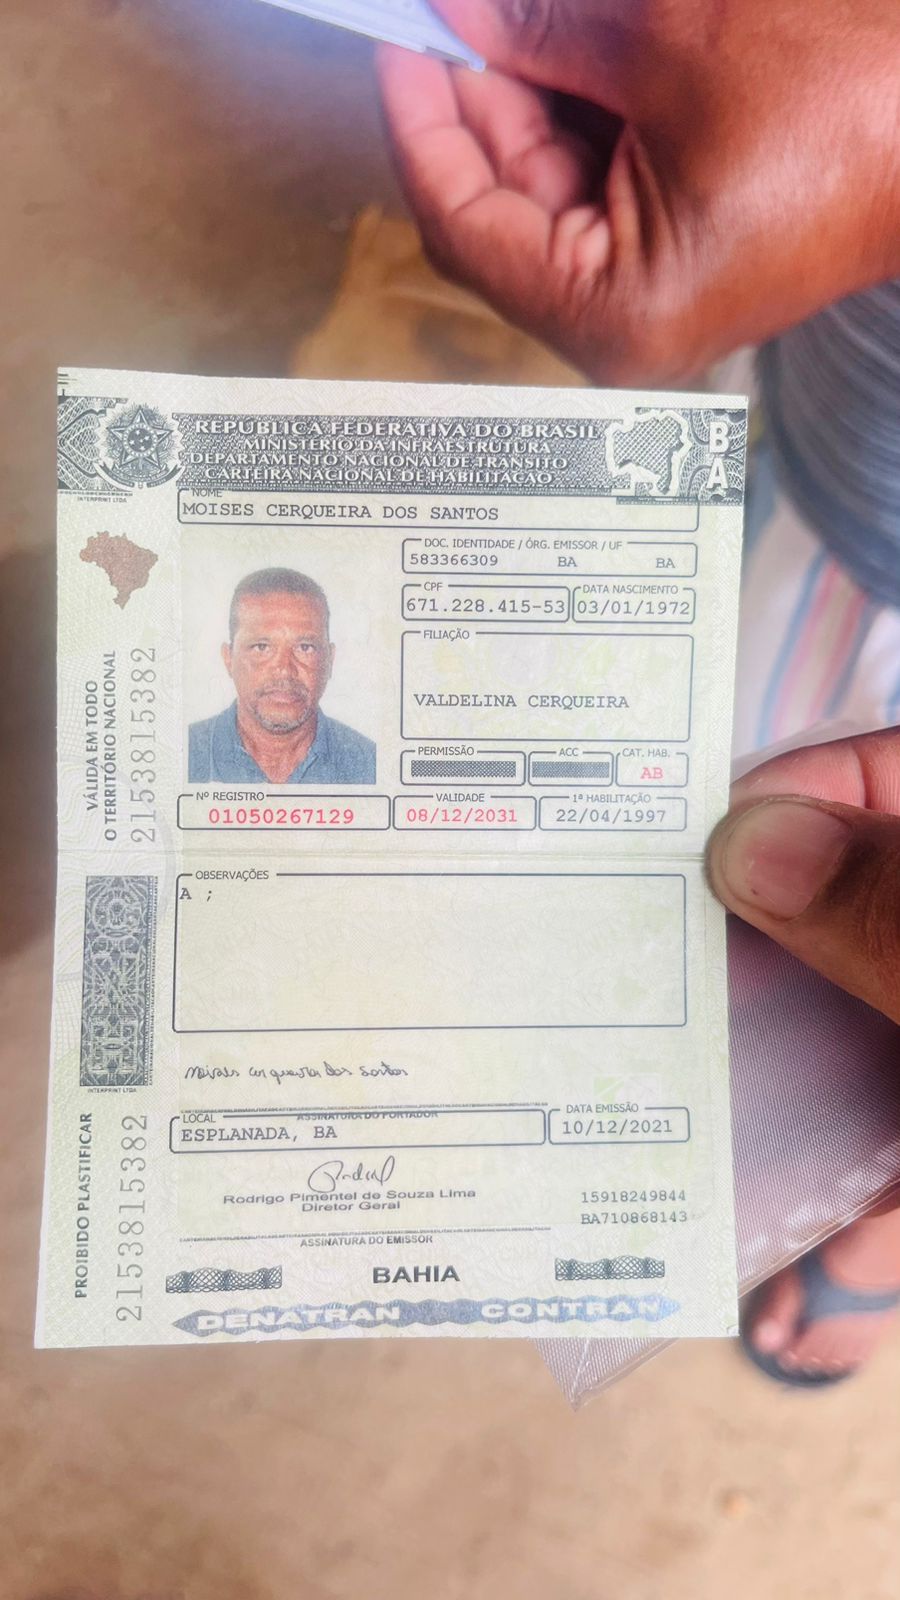 REPÚBLICA FEDERATIVA DO BRASIL
MINISTÉRIO DA INFRAESTRUTURA
DEPARTAMENTO NACIONAL DE TRÂNSITO
CARTEIRA NACIONAL DE HABILITAÇÃO
BA
INTERPRINT LTDA
NOME
MOISES CERQUEIRA DOS SANTOS
DOC. IDENTIDADE / ÓRG. EMISSOR / UF
583366309 BA BA
CPF
671.228.415-53
DATA NASCIMENTO
03/01/1972
FILIAÇÃO
VALDELINA CERQUEIRA
PERMISSÃO
ACC
CAT. HAB.
AB
Nº REGISTRO
01050267129
VALIDADE
08/12/2031
1ª HABILITAÇÃO
22/04/1997
VÁLIDA EM TODO
O TERRITÓRIO NACIONAL
2153815382
OBSERVAÇÕES
A ;
INTERPRINT LTDA
Moises cerqueira dos santos
ASSINATURA DO PORTADOR
LOCAL
ESPLANADA, BA
DATA EMISSÃO
10/12/2021
PROIBIDO PLASTIFICAR
2153815382
Rodrigo Pimentel de Souza Lima
Diretor Geral
15918249844
BA710868143
ASSINATURA DO EMISSOR
BAHIA
DENATRAN CONTRAN